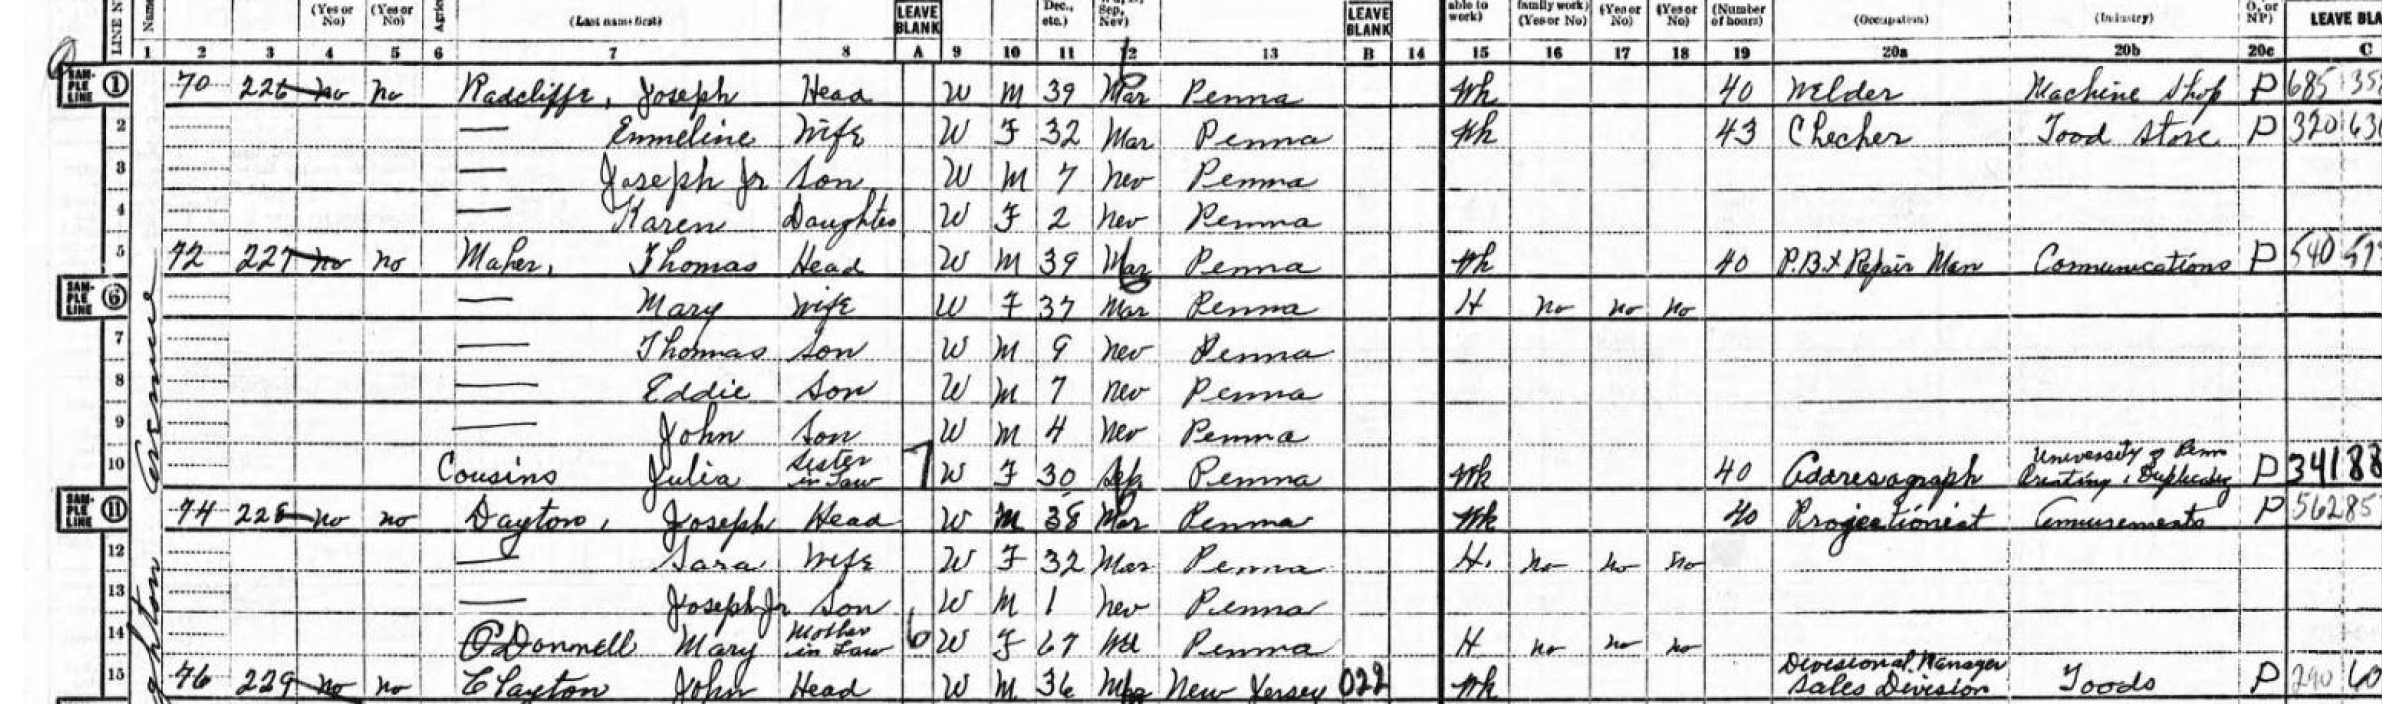 LINE N Name (Yes or No) (Yes or No) Agric (Last name first) LEAVE BLANK Dec., etc.) Sep, Nev) LEAVE BLANK able to work) family work) (Yes or No) (Yes or No) (Yes or No) (Number of hours) (Occupation) (Industry) O, or NP) LEAVE BLA
1 2 3 4 5 6 7 8 A 9 10 11 12 13 B 14 15 16 17 18 19 20a 20b 20c C
SAMPLE LINE 1 70 226 No No Radcliffe, Joseph Head W M 39 Mar Penna Wk 40 Welder Machine Shop P 685
2 — Emmeline Wife W F 32 Mar Penna Wk 43 Checker Food Store P 320
3 — Joseph Jr Son W M 7 Nev Penna
4 — Karen Daughter W F 2 Nev Penna
5 72 227 No No Maher, Thomas Head W M 39 Mar Penna Wk 40 P.B.X Repair Man Communications P 540
SAMPLE LINE 6 — Mary Wife W F 37 Mar Penna H No No No
7 — Thomas Son W M 9 Nev Penna
8 — Eddie Son W M 7 Nev Penna
9 — John Son W M 4 Nev Penna
10 Cousins Julia Sister in Law 7 W F 30 Sep Penna Wk 40 Addresograph University of Penn Printing & Duplicating P 34188
SAMPLE LINE 11 74 228 No No Dayton, Joseph Head W M 38 Mar Penna Wk 40 Projectionist Amusements P 56285
12 — Sara Wife W F 32 Mar Penna H. No No No
13 — Joseph Jr Son W M 1 Nev Penna
14 O'Donnell Mary Mother in Law 6 W F 67 Wd Penna H No No No
15 76 229 No No Clayton John Head W M 36 Mar New Jersey 022 Wk Divisional Manager Sales Division Foods P 290 60
ghton Avenue